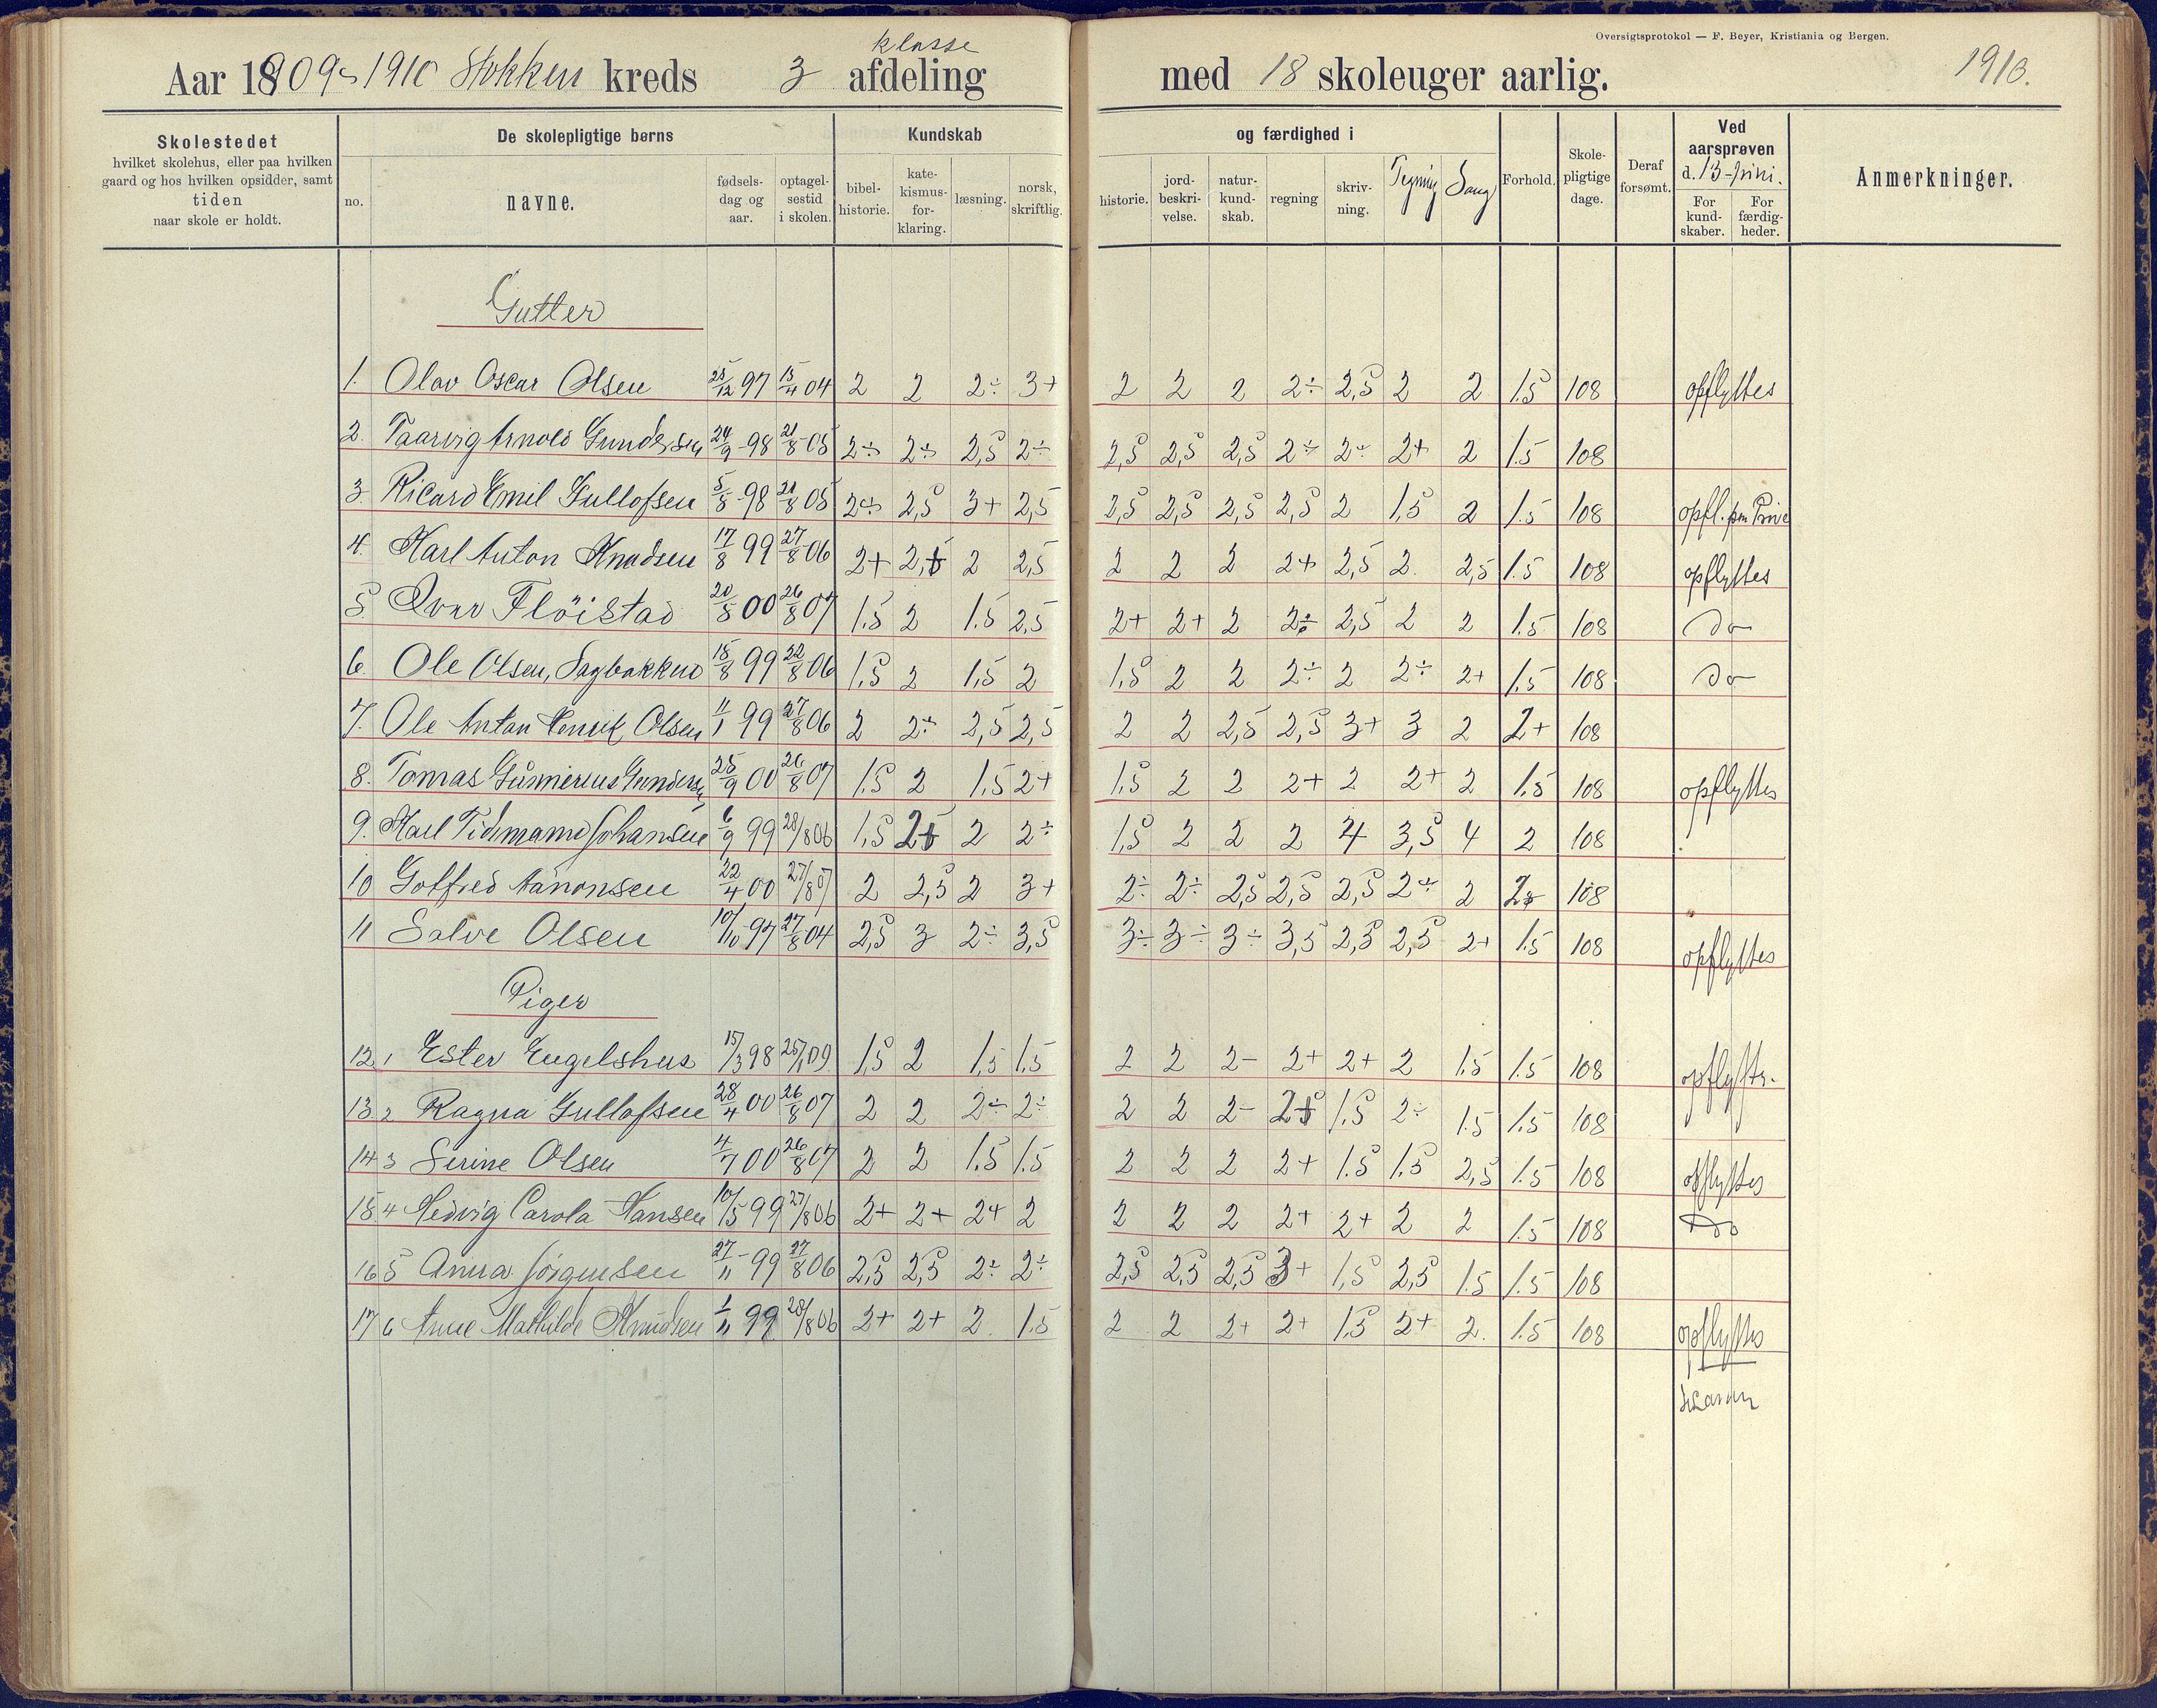 Oversigtsprotokol — F. Beyer, Kristiania og Bergen.
klasse
Aar 1909-1910 Stokken kreds 3 afdeling med 18 skoleuger aarlig. 1910.
Skolestedet hvilket skolehus, eller paa hvilken gaard og hos hvilken opsidder, samt tiden naar skole er holdt.
De skolepligtige børns
no. navne. fødsels-dag og aar. optagel-sestid i skolen.
Kundskab og færdighed i
bibel-historie. kate-kismus-for-klaring. læsning. norsk, skriftlig. historie. jord-beskri-velse. natur-kund-skab. regning skriv-ning. Tegning Sang
Forhold. Skole-pligtige dage. Deraf forsømt. Ved aarsprøven d. 13-juni. For kund-skaber. For færdig-heder. Anmerkninger.
Gutter
1. Olav Oscar Olsen 25/12 97 15/4 04 2 2 2÷ 3+ 2 2 2 2÷ 2,5 2 2 1.5 108 opflyttes
2. Taarvig Arnold Gundersen 24/9-98 21/8-05 2÷ 2÷ 2,5 2÷ 2,5 2,5 2,5 2÷ 2÷ 2+ 2 1.5 108
3. Ricard Emil Gullofsen 5/8-98 21/8 05 2÷ 2,5 3+ 2,5 2,5 2,5 2,5 2,5 2 1,5 2 1.5 108 opfl.
4. Karl Anton Knudsen 17/8 99 27/8 06 2+ 2,5 2 2,5 2 2 2 2+ 2,5 2 2,5 1.5 108 opflyttes
5. Ivar Flöistad 20/5 00 26/8 07 1.5 2 1.5 2,5 2+ 2+ 2 2÷ 2,5 2 2 1.5 108 do
6. Ole Olsen, Sagbakken 15/8 99 22/8 06 1,5 2 1,5 2 1,5 2 2 2÷ 2 2÷ 2+ 1.5 108 do
7. Ole Anton Henrik Olsen 11/1 99 27/8 06 2 2÷ 2,5 2,5 2 2 2,5 2,5 3+ 3 2 2+ 108
8. Tomas Gunnerius Gundersen 25/9 00 26/8 07 1.5 2 1.5 2+ 1,5 2 2 2+ 2 2+ 2 1.5 108 opflyttes
9. Karl Tidemann Johansen 6/9 99 28/8 06 1,5 2+ 2 2÷ 1,5 2 2 2 4 3,5 4 2 108
10 Gotfred Aanonsen 22/4 00 27/8 07 2 2,5 2 3+ 2÷ 2÷ 2,5 2,5 2,5 2÷ 2 2+ 108
11 Salve Olsen 10/10-97 27/8 04 2,5 3 2÷ 3,5 3÷ 3÷ 3÷ 3,5 2,5 2,5 2+ 1.5 108 opflyttes
Piger
12. 1 Ester Engelshus 15/3 98 25/1 09 1,5 2 1,5 1.5 2 2 2- 2+ 2+ 2 1.5 1.5 108 opflyttes.
13. 2 Ragna Gullofsen 28/4 00 26/8 07 2 2 2÷ 2÷ 2 2 2- 2+ 1.5 2÷ 1.5 1.5 108
14 3 Serine Olsen 4/7 00 26/8 07 2 2 1.5 1.5 2 2 2 2+ 1.5 1.5 2,5 1.5 108 opflyttes
15 4 Hedvig Carola Hansen 10/5 99 27/8 06 2+ 2+ 2+ 2 2 2 2 2+ 2+ 2 2 1.5 108 Do
16 5 Anna Jörgensen 27/11-99 27/8 06 2,5 2,5 2÷ 2÷ 2,5 2,5 2,5 3+ 1,5 2,5 1.5 1.5 108
17 6 Anne Mathilde Knudsen 1/11 99 28/8 06 2+ 2+ 2 1.5 2 2 2+ 2+ 1.5 2+ 2 1.5 108 opflyttes